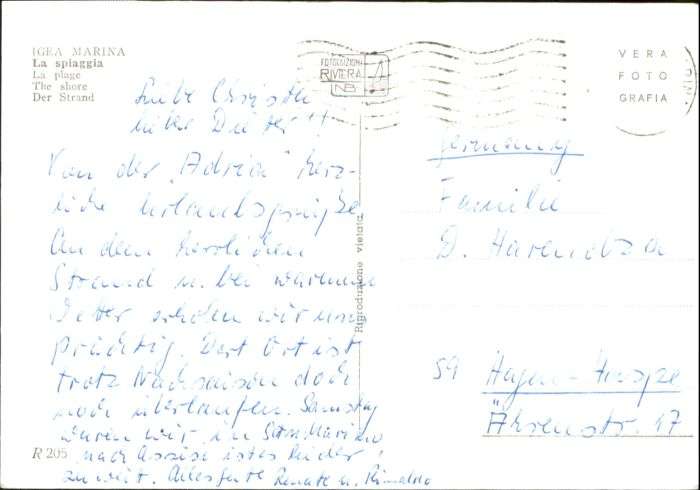 IGEA MARINA
La spiaggia
La plage
The shore
Der Strand
FOTOEDIZIONI
RIVIERA
NB
VERA
FOTO
GRAFIA
Liebe Christa
lieber Dieter!!
Von der "Adria" herz-
liche Urlaubsgrüße
An dem herrlichen
Strand u. bei warmem
Wetter erholen wir uns
prächtig. Der Ort ist
trotz Nachsaison doch
noch überlaufen. Samstag
waren wir in San Marino
nach Assisi ist es leider
zu weit. Alles gute Renate u. Rinaldo
R 205
Riproduzione vietata
Germany
Familie
D.
59 Hagen-Haspe
Ährenstr. 17